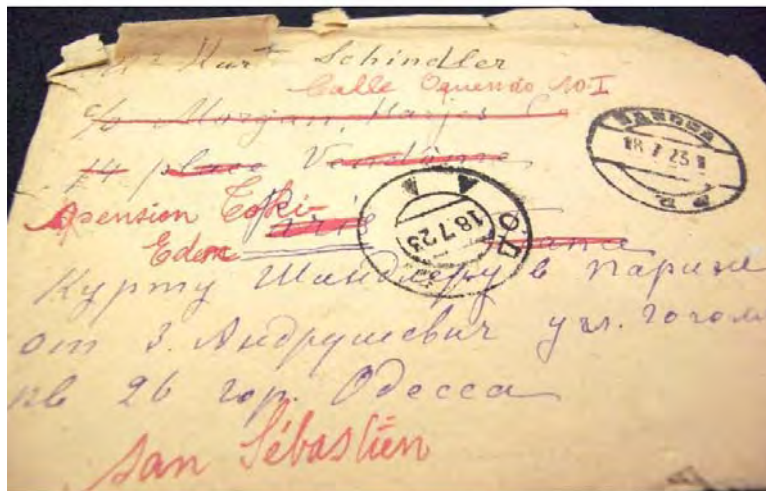 Mr Kurt Schindler
Calle Oquendo 10 I
c/o Morgan, Harjes Co
14 place Vendôme
pension Toki-
Eden Paris
Курту Шиндлеру в Париже
от З. Андрушевич угл. Гоголя
кв 26 гор. Одесса
San Sébastien
18.7.23
18 7 23